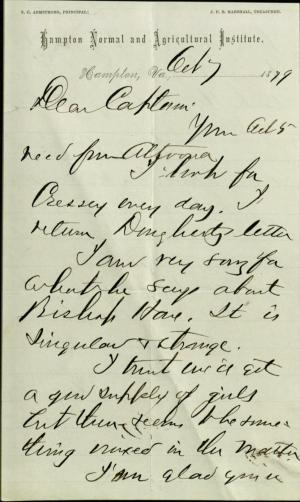 S. C. ARMSTRONG, PRINCIPAL. J. F. B. MARSHALL, TREASURER.
Hampton Normal and Agricultural Institute.
Hampton, Va., Oct 7 1879
Dear Captain:
Your Oct 5
recd from Altoona
I look for
Cressey every day. I
return Dougherty's letter
I am very sorry for
what he says about
Bishop Hare. It is
singular & strange.
I trust we'll get
a good supply of girls
but there seems to be some
thing mixed in the matter
I am glad you